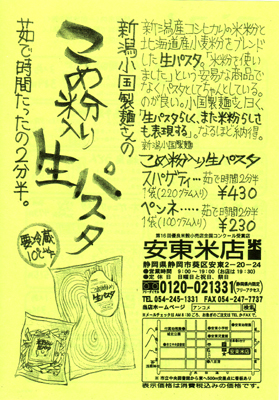 茹で時間たったの2分半。
新潟小国製麺さんの
こめ粉入り
生パスタ
要冷蔵
新潟産コシヒカリの米粉と
北海道産小麦粉をブレンド
した生パスタ。「米粉を使い
ました」という安易な商品で
なくパスタとしてちゃんとしている
のが良い。小国製麺さん曰く、
「生パスタらしく、また米粉らしさ
も表現する」。なるほど納得。
新潟小国製麺
こめ粉入り生パスタ
スパゲティ…茹で時間2分半
1袋(220グラム入り) ¥430
ペンネ……茹で時間2分半
1袋(100グラム入り) ¥230
安東米店
静岡県静岡市葵区安東2-20-24
●営業時間 9:00~19:00
●定休日 日曜日と祝日、祭日
0120-021331
TEL 054-245-1331 FAX 054-247-7737
●店ホームページ アンコメ 検索
表示価格は消費税込みの価格です。